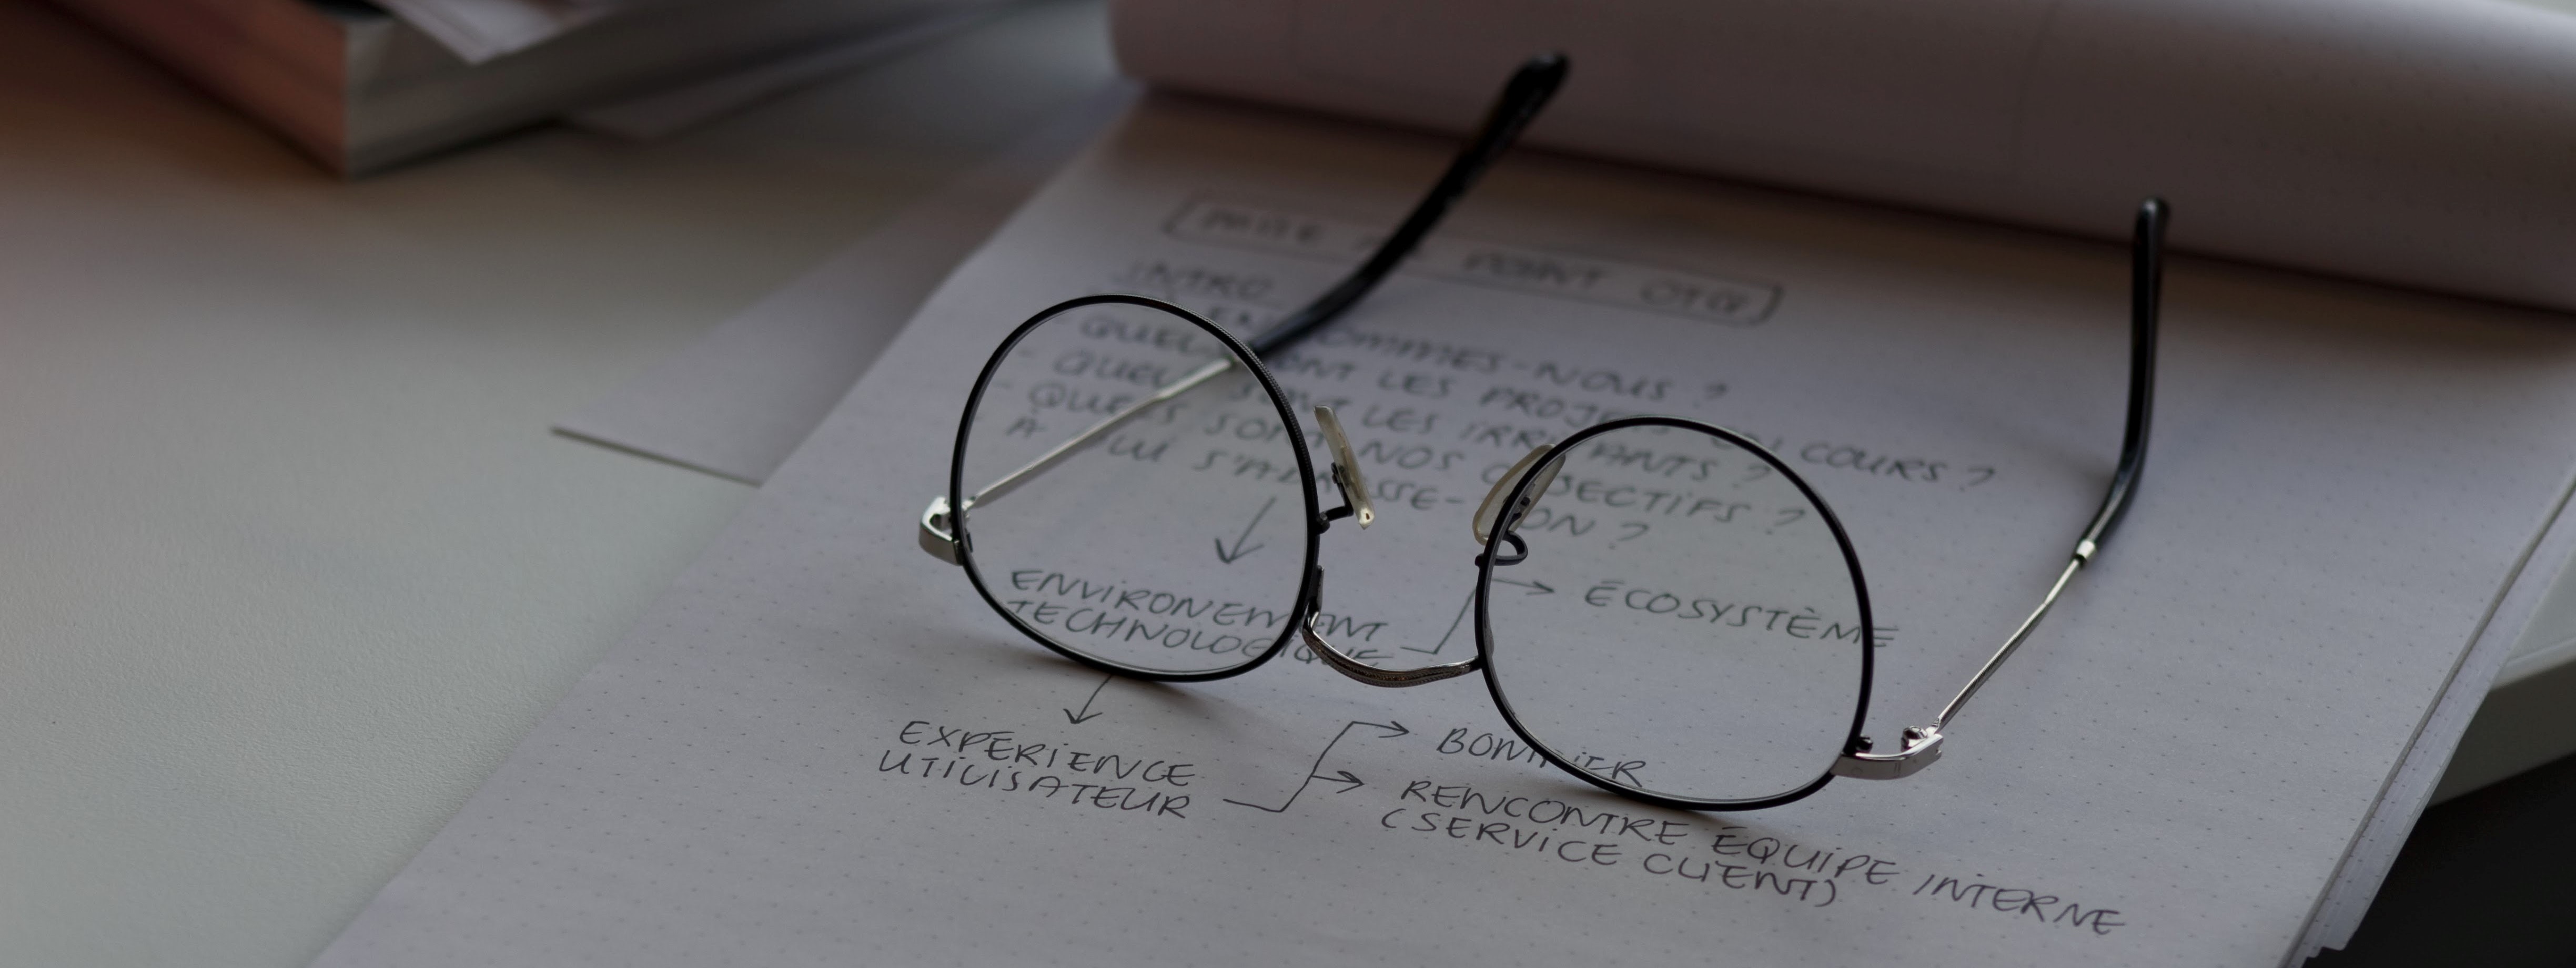 POINT OTG
INTRO
EN SOMMES-NOUS ?
- QUELS SONT LES PROJETS EN COURS ?
- QUELS SONT LES IRRITANTS ?
- QUELS SONT NOS OBJECTIFS ?
À QUI S'ADRESSE-T-ON ?
ENVIRONEMENT
TECHNOLOGIQUE
ÉCOSYSTÈME
EXPÉRIENCE
UTILISATEUR
BONIFIER
RENCONTRE ÉQUIPE INTERNE
(SERVICE CLIENT)